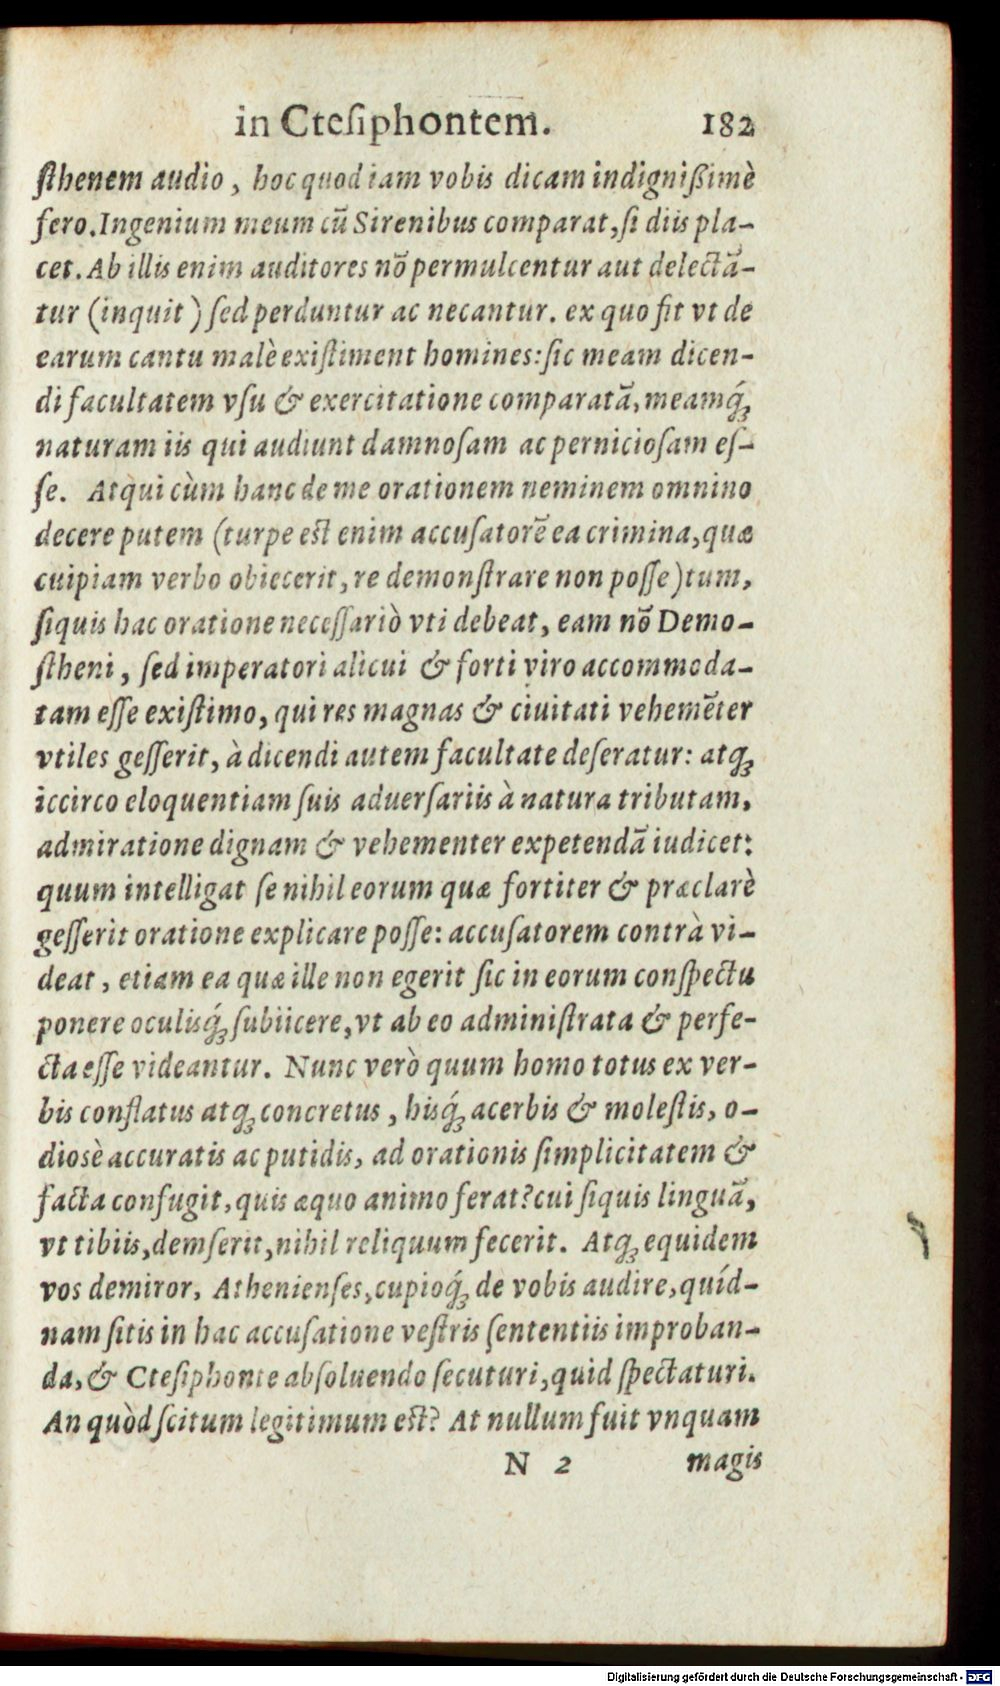 in Cteſiphontem. 182
ſthenem audio, hoc quod iam vobis dicam indignißimè
fero. Ingenium meum cũ Sirenibus comparat, ſi diis pla-
cet. Ab illis enim auditores nõ permulcentur aut delectã-
tur (inquit) ſed perduntur ac necantur. ex quo fit vt de
earum cantu malè exiſtiment homines: ſic meam dicen-
di facultatem vſu & exercitatione comparatã, meamq́ꝫ
naturam iis qui audiunt damnoſam ac pernicioſam eſ-
ſe. Atqui cùm hanc de me orationem neminem omnino
decere putem (turpe eſt enim accuſatorẽ ea crimina, quæ
cuipiam verbo obiecerit, re demonſtrare non poſſe) tum,
ſiquis hac oratione neceſſariò vti debeat, eam nõ Demo-
ſtheni, ſed imperatori alicui & forti viro accommoda-
tam eſſe exiſtimo, qui res magnas & ciuitati vehemẽter
vtiles geſſerit, à dicendi autem facultate deſeratur: atqꝫ
iccirco eloquentiam ſuis aduerſariis à natura tributam,
admiratione dignam & vehementer expetendã iudicet:
quum intelligat ſe nihil eorum quæ fortiter & præclarè
geſſerit oratione explicare poſſe: accuſatorem contrà vi-
deat, etiam ea quæ ille non egerit ſic in eorum conſpectu
ponere oculisq́ꝫ ſubiicere, vt ab eo adminiſtrata & perfe-
cta eſſe videantur. Nunc verò quum homo totus ex ver-
bis conflatus atqꝫ concretus, hisq́ꝫ acerbis & moleſtis, o-
dioſè accuratis ac putidis, ad orationis ſimplicitatem &
facta confugit, quis æquo animo ferat? cui ſiquis linguã,
vt tibiis, demſerit, nihil reliquum fecerit. Atqꝫ equidem
vos demiror, Athenienſes, cupioq́ꝫ de vobis audire, quíd-
nam ſitis in hac accuſatione veſtris ſententiis improban-
da, & Cteſiphonte abſoluendo ſecuturi, quid ſpectaturi.
An quòd ſcitum legitimum eſt? At nullum fuit vnquam
N 2 magis
Digitalisierung gefördert durch die Deutsche Forschungsgemeinschaft - DFG